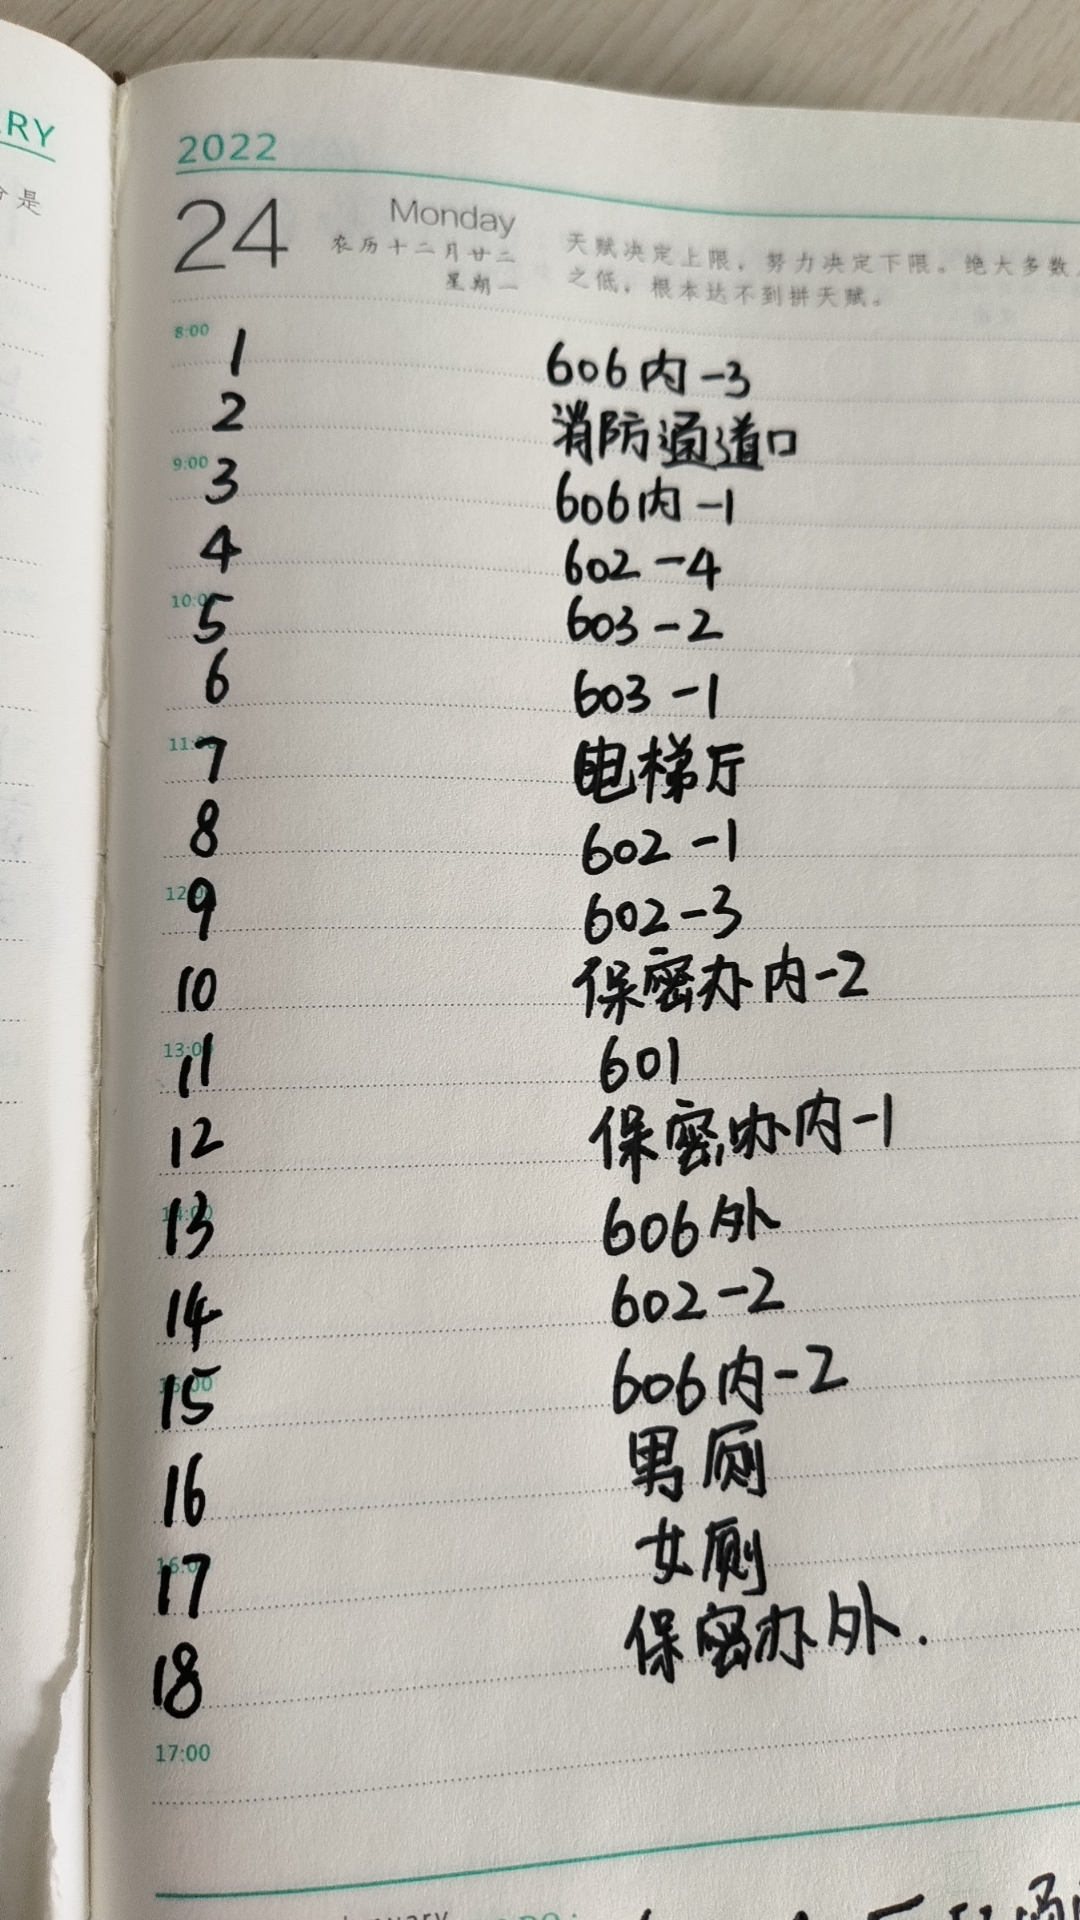 RY
是
2022
24 Monday
农历十二月廿二
星期一
天赋决定上限，努力决定下限。绝大多数
之低，根本达不到拼天赋。
8:00
1 606内-3
2 消防通道口
9:00
3 606内-1
4 602-4
10:00
5 603-2
6 603-1
11:00
7 电梯厅
8 602-1
12:00
9 602-3
10 保密办内-2
13:00
11 601
12 保密办内-1
14:00
13 606外
14 602-2
15:00
15 606内-2
16 男厕
16:00
17 女厕
18 保密办外.
17:00